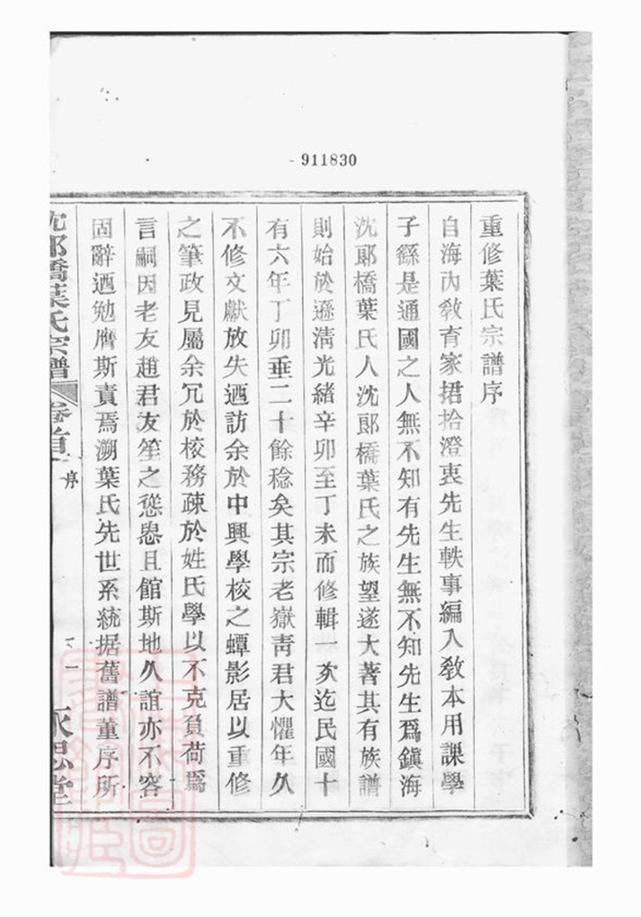 911830
重修葉氏宗譜序
自海內敎育家捃拾澄衷先生軼事編入敎本用課學
子繇是通國之人無不知有先生無不知先生爲鎭海
沈郞橋葉氏人沈郞橋葉氏之族望遂大著其有族譜
則始於遜淸光緒辛卯至丁未而修輯一次迄民國十
有六年丁卯垂二十餘稔矣其宗老嶽靑君大懼年久
不修文獻放失迺訪余於中興學校之蟫影居以重修
之筆政見屬余冗於校務疎於姓氏學以不克負荷爲
言嗣因老友趙君友笙之慫恿且館斯地久誼亦不容
固辭迺勉膺斯責焉溯葉氏先世系統据舊譜董序所
沈郞橋葉氏宗譜 卷首 序 一 永思堂